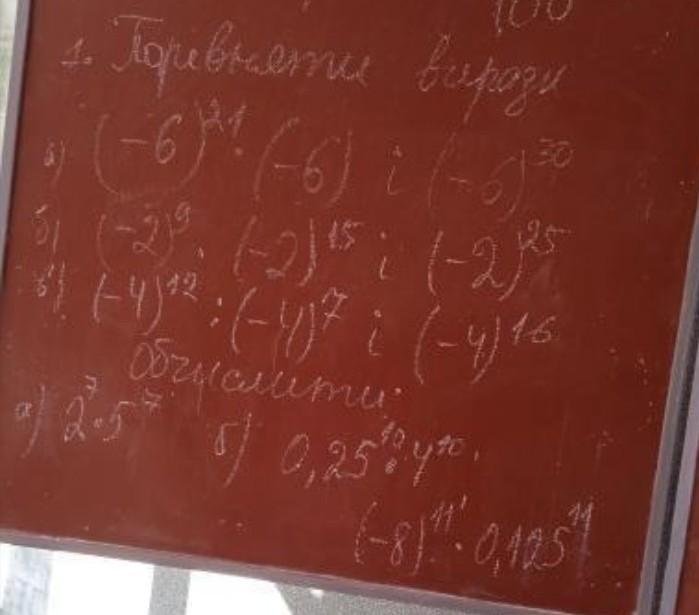 100
1. Порівняти вирази
а) (-6)²¹ · (-6) і (-6)³⁰
б) (-2)⁹ · (-2)¹⁵ і (-2)²⁵
в) (-4)¹² : (-4)⁷ і (-4)¹⁶
Обчислити:
а) 2⁷·5⁷ б) 0,25¹⁰·4¹⁰.
(-8)¹¹ · 0,125¹¹